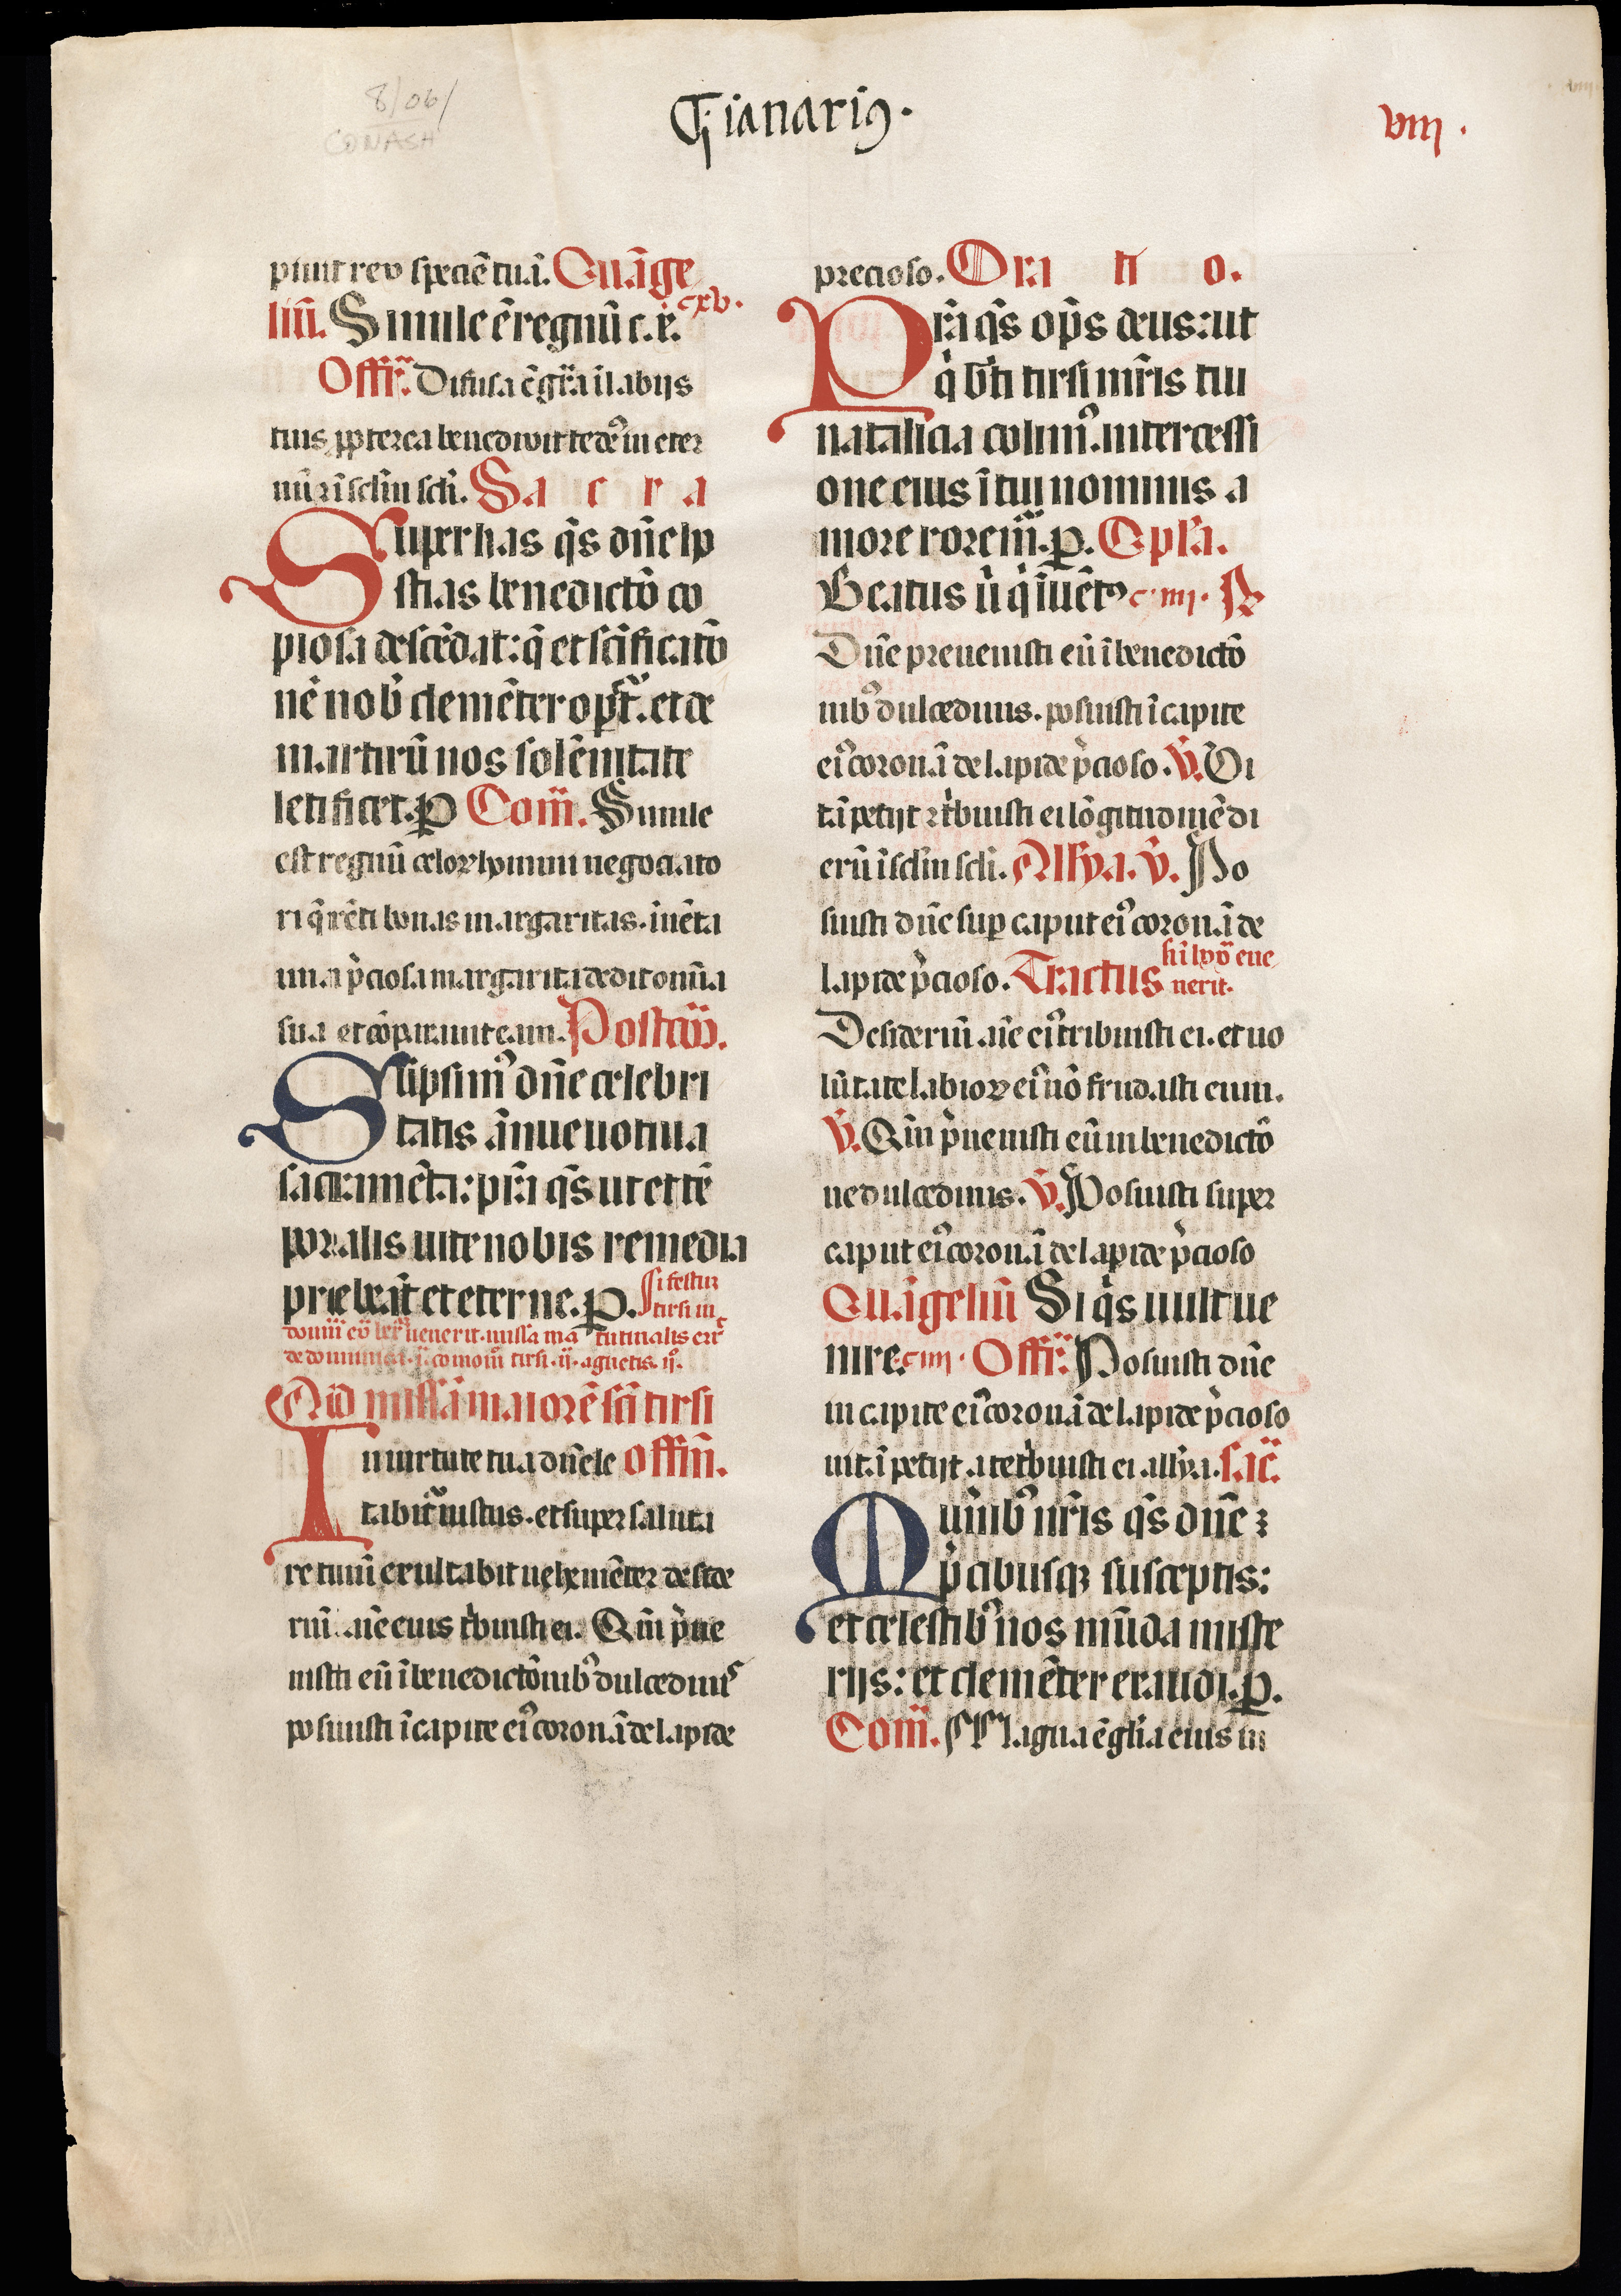 8/06/
CONASH
¶ ianariꝰ.
viij.
piuit rex speciē tuā. Euāge
liū. Simile ē regnū c. x. cxv.
Offr̄. Difusa ē gr̄a ī labijs
tuis ꝓpterea benedixit te deꝰ in eter
nū ⁊ ī sclm̄ scli. Sacra
Super has qs̄ dn̄e hoſ
stias benedictō co
piosa descēdat: q̄ et scīficatō
nē nob̄ clemēter opet̄. et de
martirū nos solēnitate
letificet. ꝑ Com̄. Simile
est regnū celoꝝ homini negociato
ri q̄rēti bonas margaritas. inuēta
una p̄ciosa margarita dedit omīa
sua et cōparauit eam. Postcō.
Sūpsimꝰ dn̄e celebri
tatis ānue uotiua
sacramēta: pr̄a qs̄ ut et tē
poralis uite nobis remedia
prebeāt et eterne. ꝑ. Si festuʒ
tirsi in
domī eū uenerit. missa ma tutinalis erit
de dominica. j. cōmoīo tirsi. ij. agnetis. iij.
Ad missā maiorē scī tirsi
In uirtute tua dn̄e le offiū.
tabit̄ iustus. et super saluta
re tuū exultabit uehemēter deside
riū aīe eius tribuisti ei. Qm̄ p̄ue
nisti eū ī benedictōnibꝰ dulcedinis
posuisti ī capite eiꝰ coronā de lapide
precioso. Oratio.
Pr̄a qs̄ op̄s deus: ut
q̇ bt̄i tirsi mr̄is tui
natalicia colimꝰ. intercessi
one eius ī tui nominis a
more roremꝰ. ꝑ. Epl̄a.
Beatus ū q̇ īuētꝰ c. iiij. ℟
Dn̄e preuenisti eū ī benedictō
nibꝰ dulcedinis. posuisti ī capite
eiꝰ coronā de lapide p̄cioso. ℣. Vi
tā petijt ⁊ tribuisti ei lōgitudinē di
erū ī sclm̄ scli. All̄ya. ℣. Po
suisti dn̄e sup̄ caput eiꝰ coronā de
lapide p̄cioso. Tractus si ī lxxͣ eue
nerit.
Desideriū aīe eiꝰ tribuisti ei. et uo
lūtate labioꝝ eiꝰ nō fraudasti eum.
℣. Qm̄ p̄uenisti eū in benedictō
ne dulcedinis. ℣. Posuisti super
caput eiꝰ coronā de lapide p̄cioso
Euāgeliū Si qs̄ uult ue
nire. ciiij. Offr̄. Posuisti dn̄e
in capite eiꝰ coronā de lapide p̄cioso
uitā petijt a te tribuisti ei all̄ya. sac̄.
Munībꝰ nr̄is qs̄ dn̄e ⁊
p̄cibusqꝫ susceptis:
et celestibꝰ nos mūda miste
rijs: et clemēter exaudi. ꝑ.
Com̄. Magna ē gl̄ia eius in